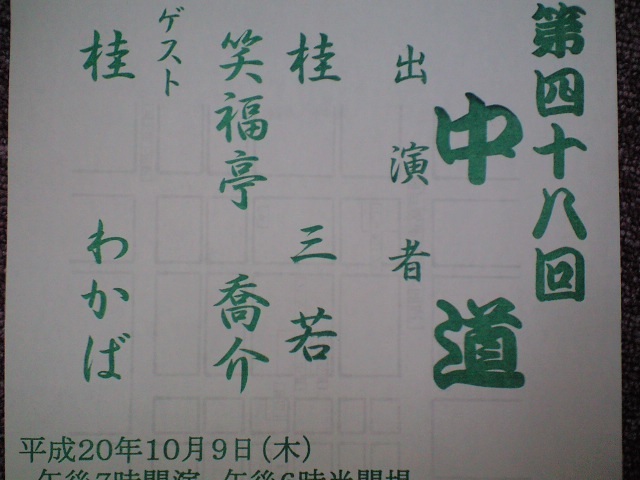 第四十八回
中道
出演者
桂 三若
笑福亭 喬介
ゲスト
桂 わかば
平成20年10月9日(木)
午後7時開演 午後6時半開場